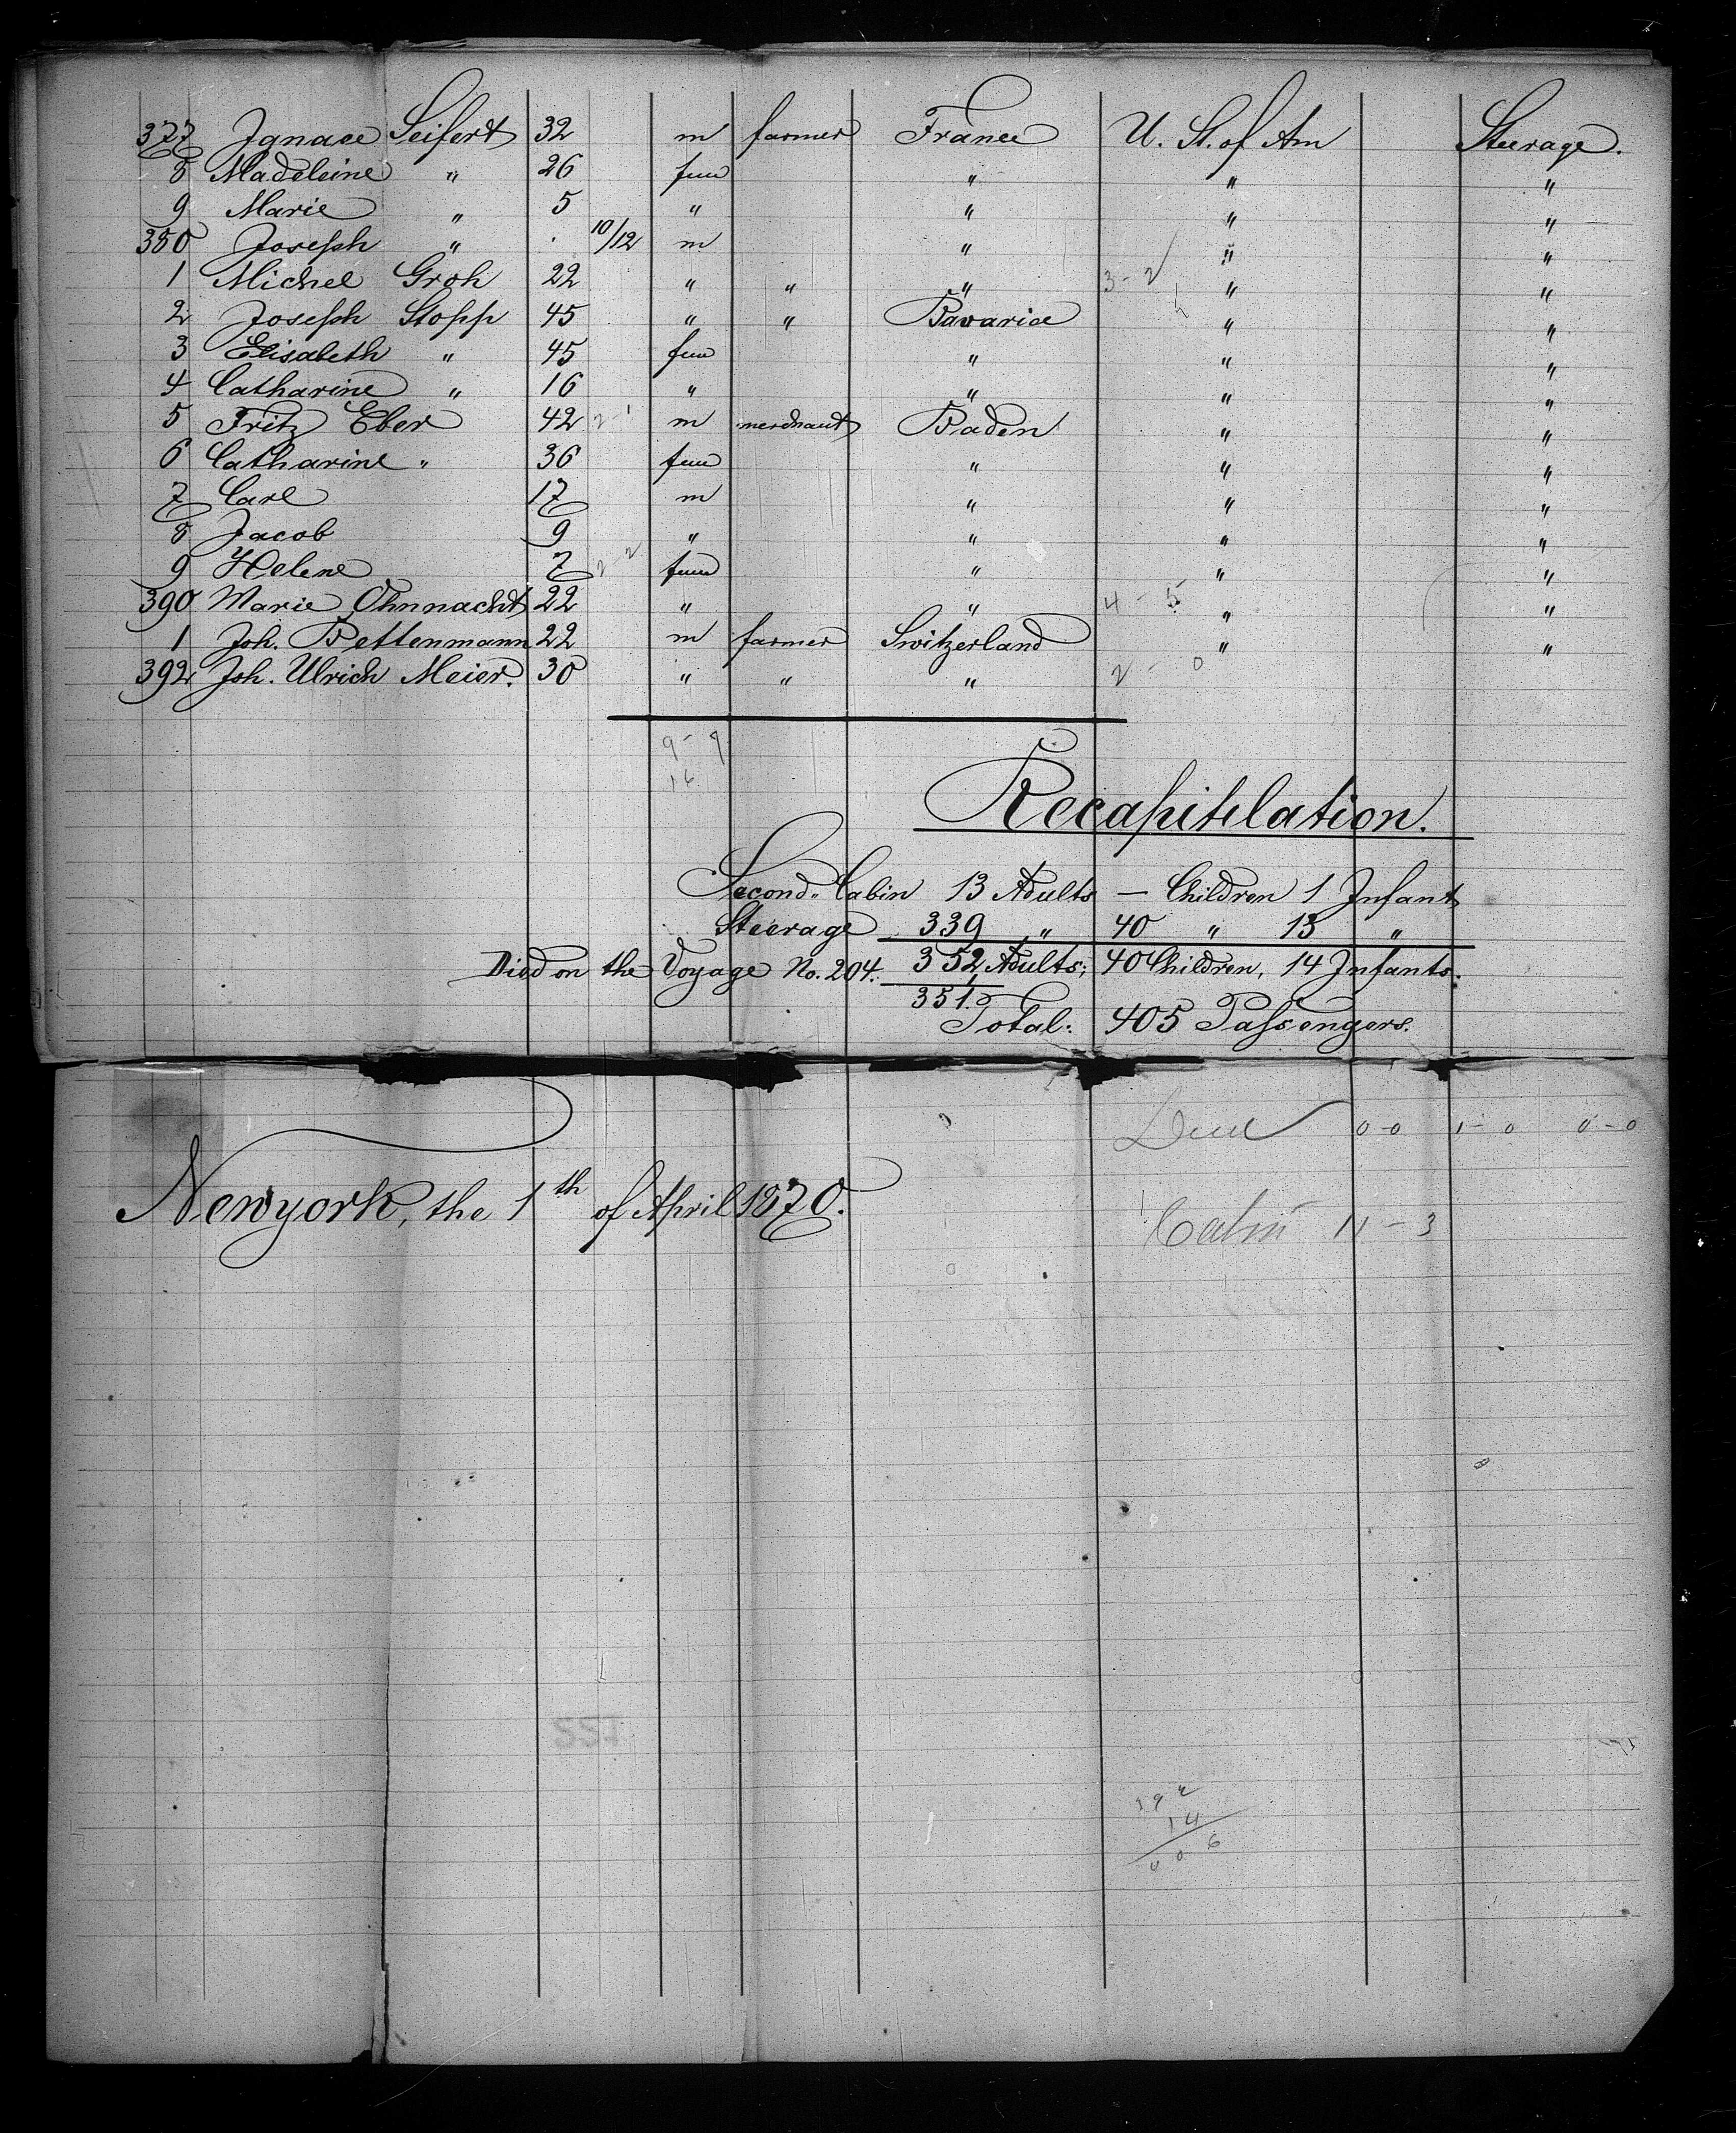 377 Ignace Seifert 32 m farmer France U. St. of Am Steerage.
8 Madeleine " 26 fem " " "
9 Marie " 5 " " " "
380 Joseph " 10/12 m " " "
1 Michel Groh 22 " " " 3-2 " "
2 Joseph Stopp 45 " " Bavaria " "
3 Elisabeth " 45 fem " " "
4 Catharine " 16 " " " "
5 Fritz Eber 42 2-1 m merchant Baden " "
6 Catharine " 36 fem " " "
7 Carl 17 m " " "
8 Jacob 9 " " " "
9 Helene 7 2-2 fem " " "
390 Marie Ohnnacht 22 " " 4-5 " "
1 Joh. Bettenmann 22 m farmer Switzerland " "
392 Joh. Ulrich Meier. 30 " " " 2-0
9-7
16
Recapitelation.
Second-Cabin 13 Adults — Children 1 Infant
Steerage 339 " 40 " 13 "
Died on the Voyage No. 204. 352 Adults; 40 Children, 14 Infants.
1
351.
Total: 405 Passengers.
0-0 1-0 0-0
Newyork, the 1th of April 1870.
Cabin 11-3
392
14
406